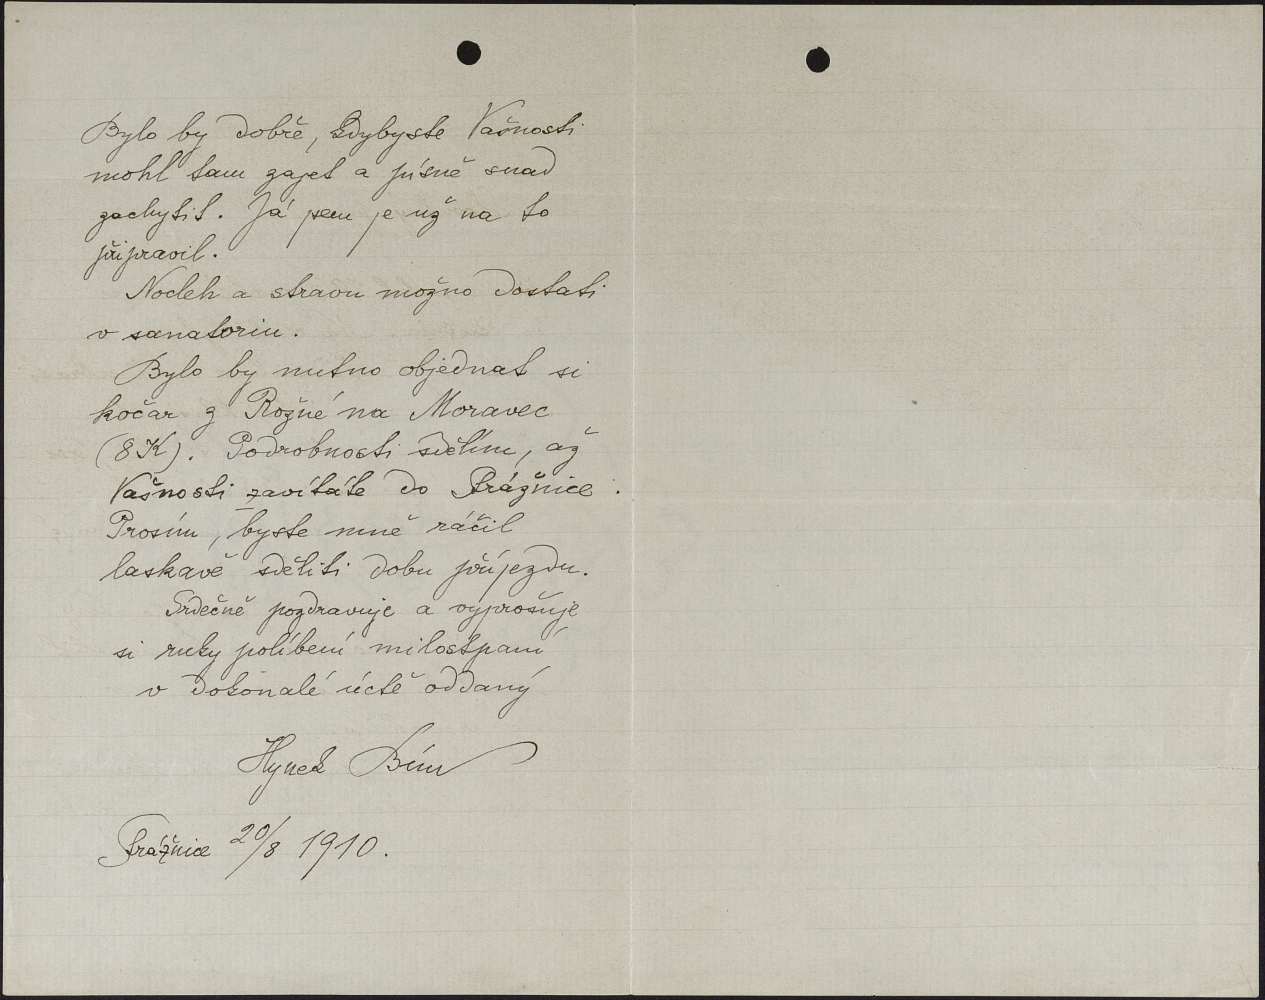 Bylo by dobře, kdybyste Vašnosti
mohl tam zajet a písně snad
zachytit. Já jsem je už na to
připravil.
Nocleh a stravu možno dostati
v sanatoriu.
Bylo by nutno objednat si
kočár z Rožné na Moravec
(8 K). Podrobnosti sdělím, až
Vašnosti zavítáte do Strážnice.
Prosím, byste mně ráčil
laskavě sděliti dobu příjezdu.
Srdečně pozdravuje a vyprošuje
si ruky políbení milostpaní
v dokonalé úctě oddaný
Hynek Bím
Strážnice 20/8 1910.